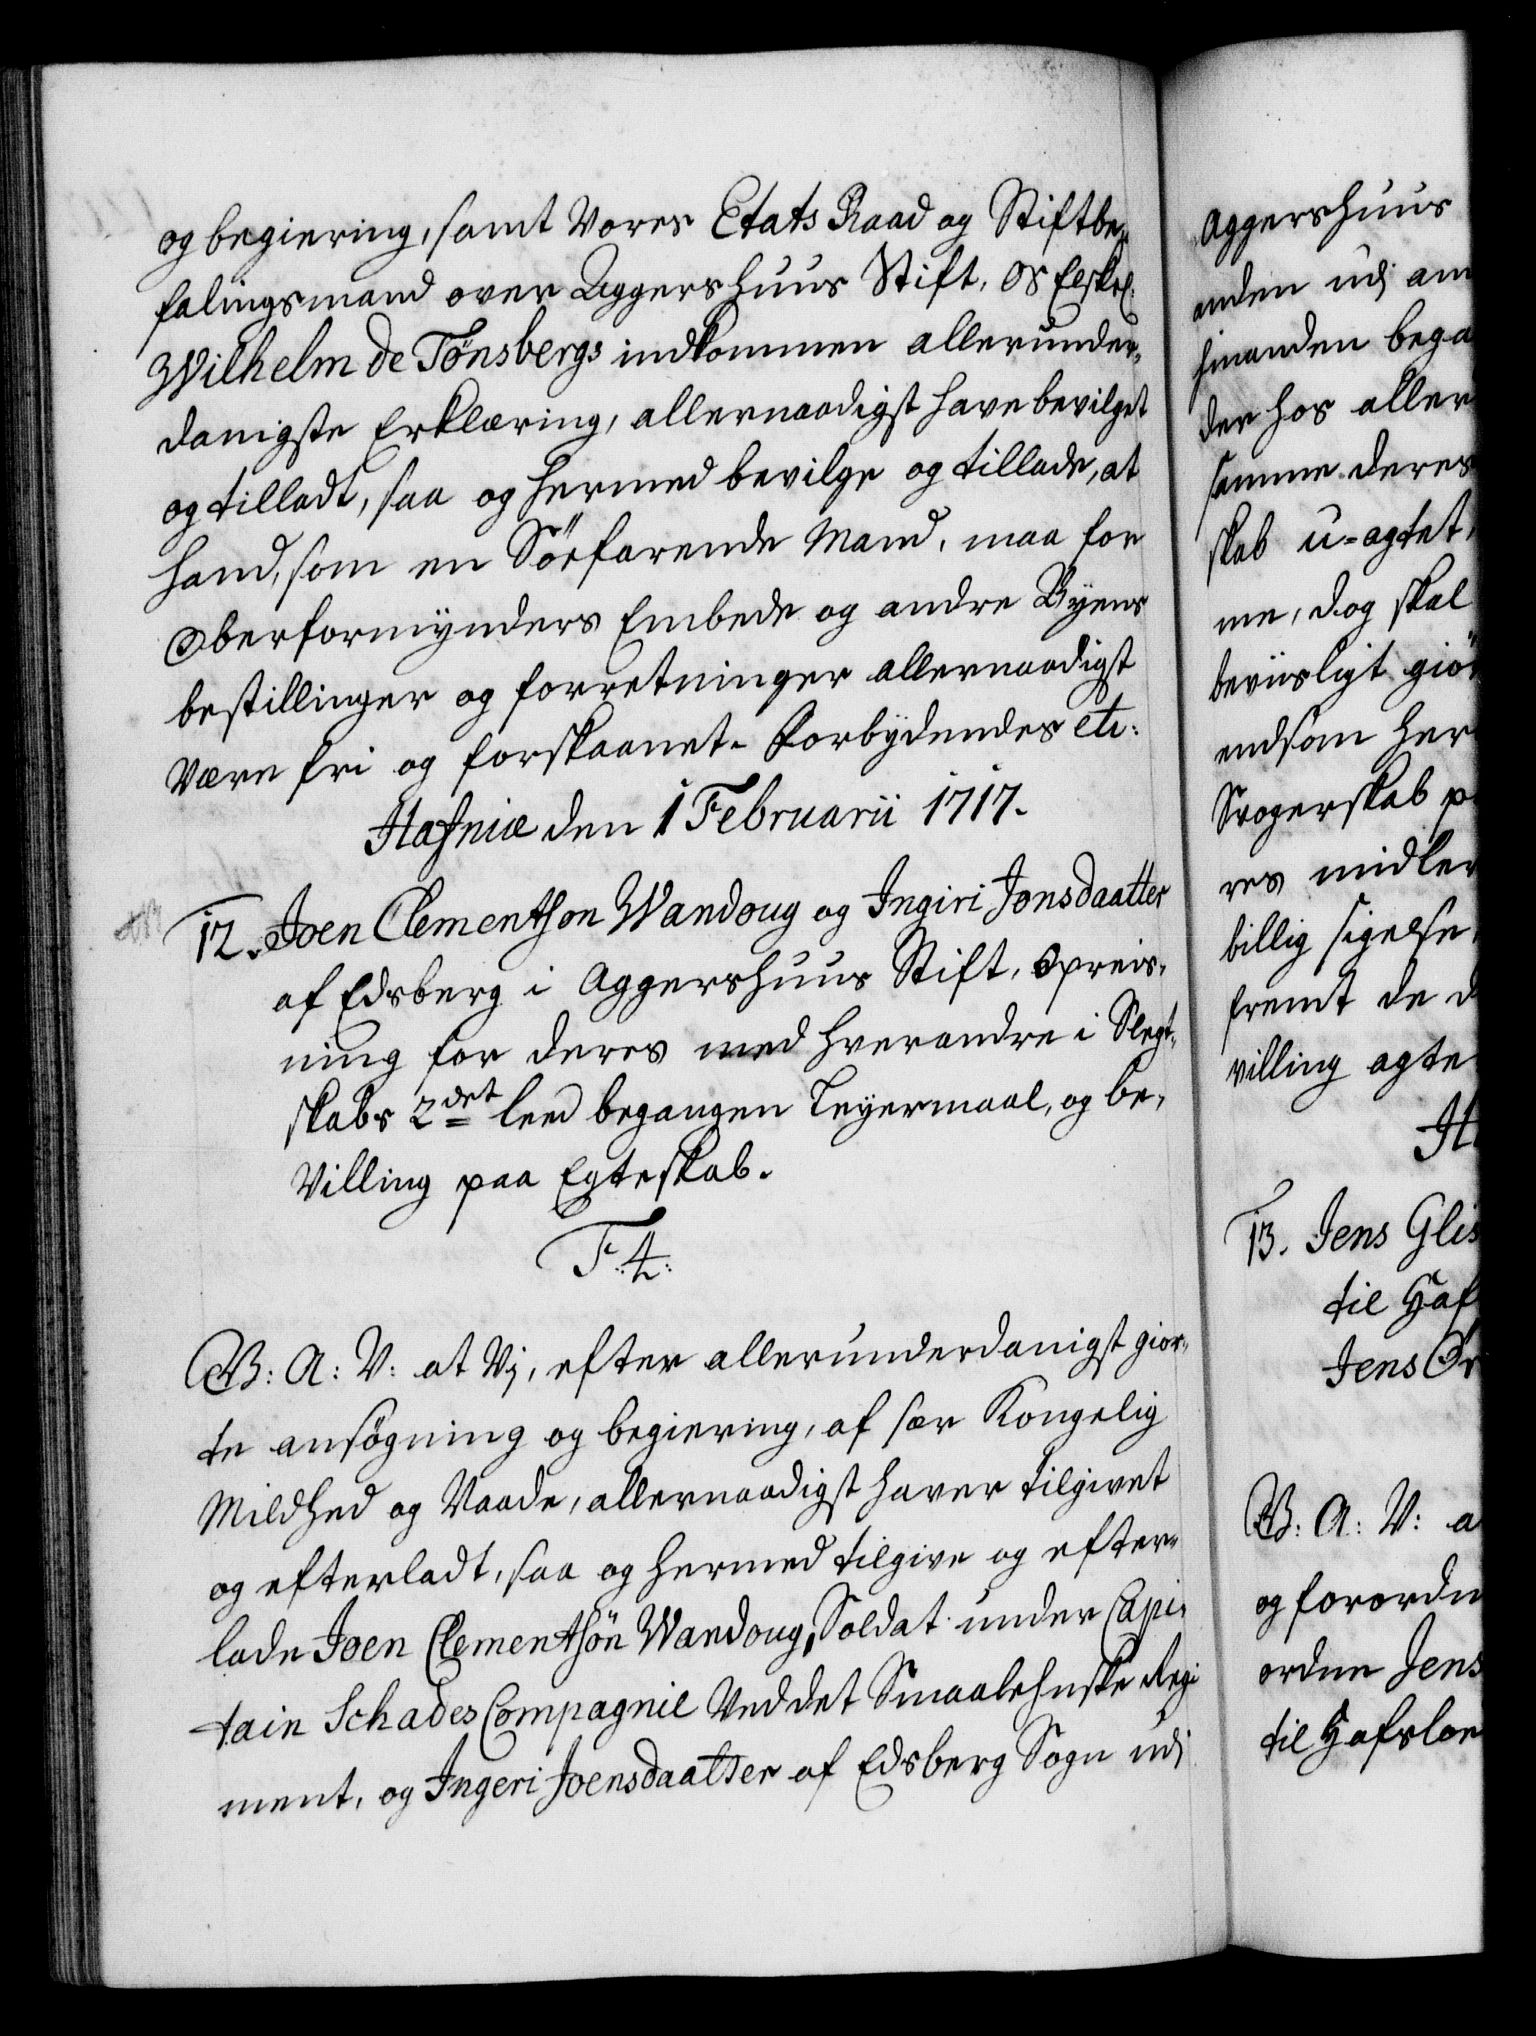 og begiering, samt Vores Etats Raad og Stiftbe-
falingsmand over Aggershuus Stift, os Elskel:
Wilhelm de Tønsbergs indkommen allerunder-
danigste Erklæring, allernaadigst have bevilget
og tilladt, saa og hermed bevilge og tillade, at
hand, som en Söefarende Mand, maa for
Oberformynders Embede og andre Byens
bestillinger og forretninger allernaadigst
være fri og forskaanet. Forbydendes etc:
Hafniæ den 1 Februarii 1717.
12. Joen Clementson Wandoug og Ingiri Jonsdaatter
af Edsberg i Aggershuus Stift, Opreis-
ning for deres med hverandre i Slegt-
skabs 2det leed begangen Leyermaal, og be-
villing paa Egteskab.
F: 4:
G: A: V: at Vj, efter allerunderdanigst gior-
te ansøgning og begiering, af sær Kongelig
Mildhed og Naade, allernaadigst haver tilgivet
og efterladt, saa og hermed tilgive og efter-
lade Joen Clementsön Wandoug, Soldat under Capi-
tain Schades Compagnie ved det Smaalehnske Regi
ment, og Ingeri Joensdaatter af Edsberg Sogn udj
Aggershuus
anden udj am
hinanden bega
der hos aller
samme deres
skab u-agtet,
me, dog skal
beviisligt giö
endsom her
Svogerskab p
res midler
billig sigelse,
fremt de d
villing agte
H
13. Jens Glis
til Haf
Jens Ør
G: A: V: a
og forordn
ordne Jens
til Hafsloe